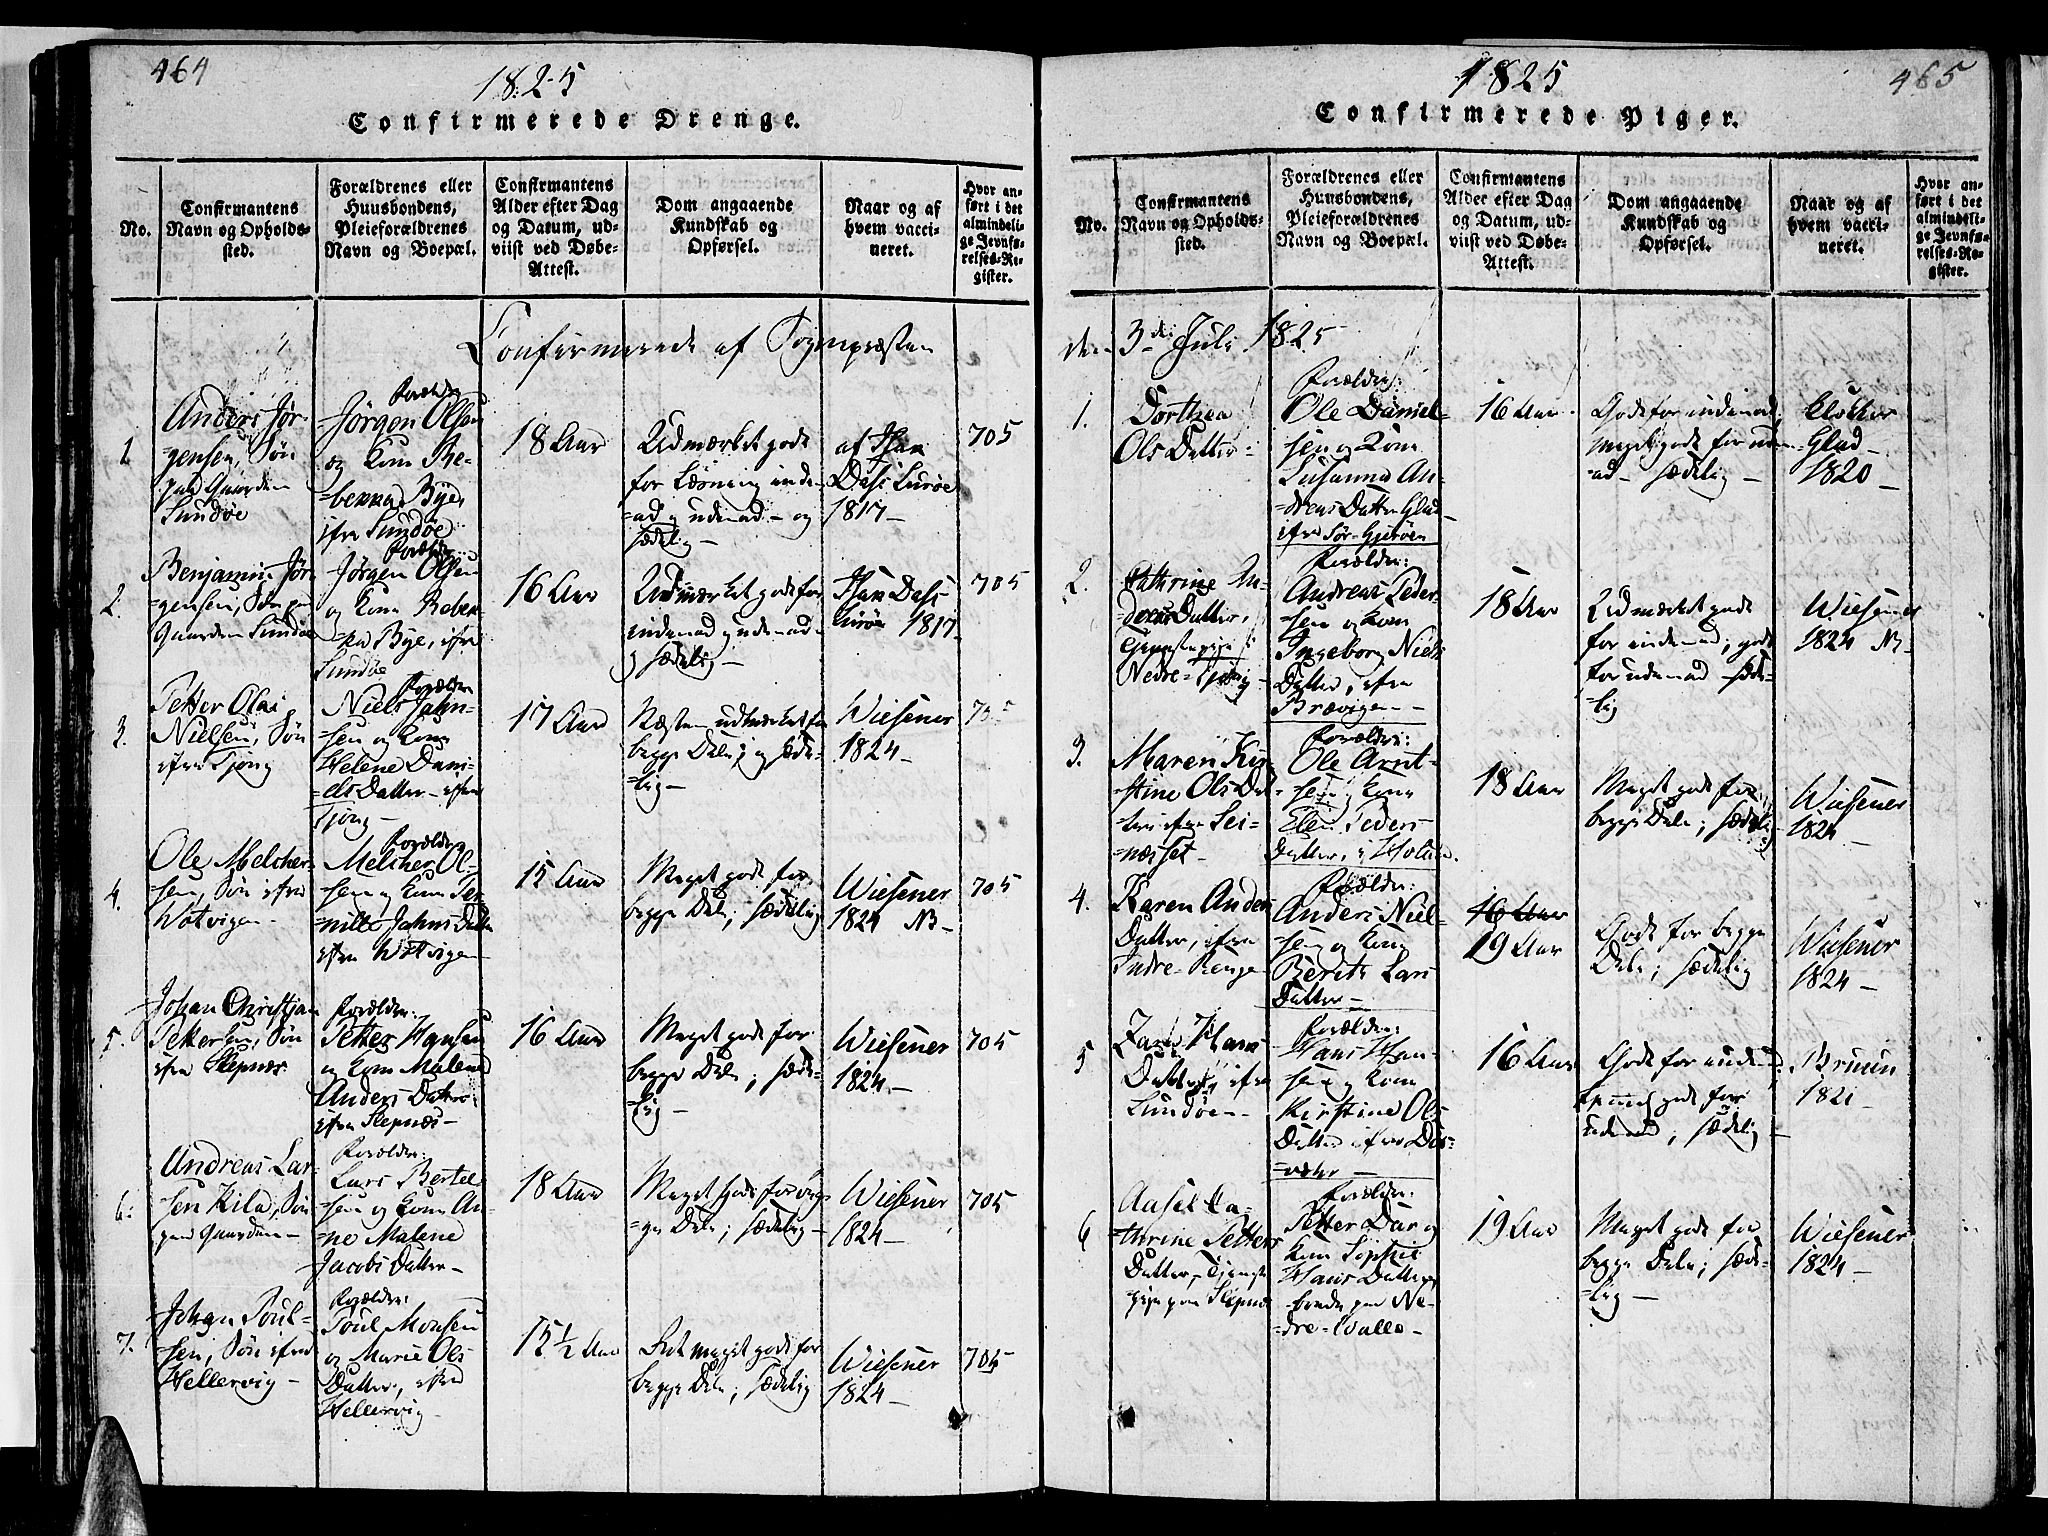 464
1825
Confirmerede Drenge.
No.
Confirmantens
Navn og Opholds-
sted.
Forældrenes eller
Huusbondens,
Pleieforældrenes
Navn og Boepæl.
Confirmantens
Alder efter Dag
og Datum, ud-
viist ved Døbe-
Attest.
Dom angaaende
Kundskab og
Opførsel.
Naar og af
hvem vacci-
neret.
Hvor an-
ført i det
almindeli-
ge Jevnfø-
relses-Re-
gister.
Confirmerede af Sognepræsten
1
Anders Jør-
gensen, Søn
paa Gaarden
Sundøe
Forældre
Jørgen Olsen
og Kone Re-
=bekka Bye,
ifra Sundøe
18 Aar
Udmærket godt
for Læsning inde-
=ad og udenad - og
sædelig -
af Hans
Dass Lurøe
1817 -
705
2.
Benjamin Jør-
=gensen, Søn paa
Gaarden Sundøe
Forældre
Jørgen Olsen
og Kone Rebek-
=ka Bye, ifra
Sundøe
16 Aar
Udmærket godt for
indenad og udenad -
og sædelig -
Hans Dass
Lurøe 1817-
705
3.
Petter Olai
Nielsen, Søn
ifra Tjong
Forældre
Niels Jahn-
sen og Kone
Helene Dani-
els Datter - ifra
Tjong -
17 Aar
Næsten udmærket for
begge Dele; og sæde-
=lig -
Wiesener
1824 -
705
4.
Ole Melcher-
sen, Søn ifra
Wotvigen -
Forældre
Melcher Ol-
sen og Kone Per-
=nille Jahns Datter
ifra Wotvigen -
15 Aar
Meget godt for
begge Dele; sædelig
Wiesener
1824 NB -
705
5.
Johan Christian
Pettersen, Søn
ifra Slepnæs
Forældre:
Petter Hansen
og Kone Malene
Anders Datter
ifra Slepnæs -
16 Aar
Meget godt for
begge Dele; sæde-
=lig -
Wiesener
1824 -
705
6.
Andreas Lar-
sen Kila, Søn
paa Gaarden -
Forældre:
Lars Bertel-
sen og Kone An-
ne Malene
Jacobs Datter -
18 Aar
Meget godt for beg-
=ge Dele; sædelig -
Wiesener
1824 -
705
7.
Johan Poul-
sen, Søn ifra
Hellervig -
Forældre:
Poul Monsen
og Marie Ols
Datter, ifra
Hellervig -
15 1/2 Aar
meget godt for
begge Dele; sædelig
Wiesener
1824 -
705
1825
465
Confirmerede Piger.
No.
Confirmantens
Navn og Opholds-
sted.
Forældrenes eller
Huusbondens,
Pleieforældrenes
Navn og Boepæl.
Confirmantens
Alder efter Dag
og Datum, ud-
viist ved Døbe-
Attest.
Dom angaaende
Kundskab og
Opførsel.
Naar og af
hvem vacci-
neret.
Hvor an-
ført i det
almindeli-
ge Jevnfø-
relses-Re-
gister.
den 3die Juli 1825
1.
Dorthea
Ols Datter
Forældre:
Ole Daniel-
sen og Kone
Susanna An-
=dreas Datter Glad
ifra Sør-Gjerøen
16 Aar
Godt for indenad;
meget godt for uden-
ad - sædelig -
Klokker
Glad
1820 -
2.
Cathrine An-
=dreas Datter,
Tjenestepige i
Nedre-Tjong -
Forældre:
Andreas Peder-
sen og Kone
Ingeborg Niels
Datter, ifra
Brævigen -
18 Aar
Udmærket godt
for indenad; godt
for udenad sæde-
=lig
Wiesener
1824 NB -
3.
Maren Kir-
stine Ols Dat-
ter ifra Sei-
=næsset -
Forældre:
Ole Arnt-
sen og Kone
Elen Peders
Datter, i
18 Aar
Meget godt for
begge Dele; sædelig
Wiesener
1824 -
4.
Karen Anders
Datter, ifra
Indre-Range
Forældre:
Anders Niel-
sen og Kone
Berith Lars
Datter -
16 Aar
19 Aar
Godt for begge
Dele; sædelig
Wiesener
1824 -
5
Hans
Datter, ifra
Sundøen -
Forældre:
Hans Han-
sen og Kone
Kirstine Ols
Datter ifra
16 Aar
Godt for indenad
godt for
udenad; sædelig -
Bruun
1821
6
Aasel Ca-
thrine Petters
Datter, Tjeneste
pige paa Slepnæs
Forældre:
Petter Dar og
Kone Sophie
Hans Datter,
boende paa Ne-
dre-Walle -
19 Aar
Meget godt for
begge Dele; sæde-
=lig -
Wiesener
1824 -